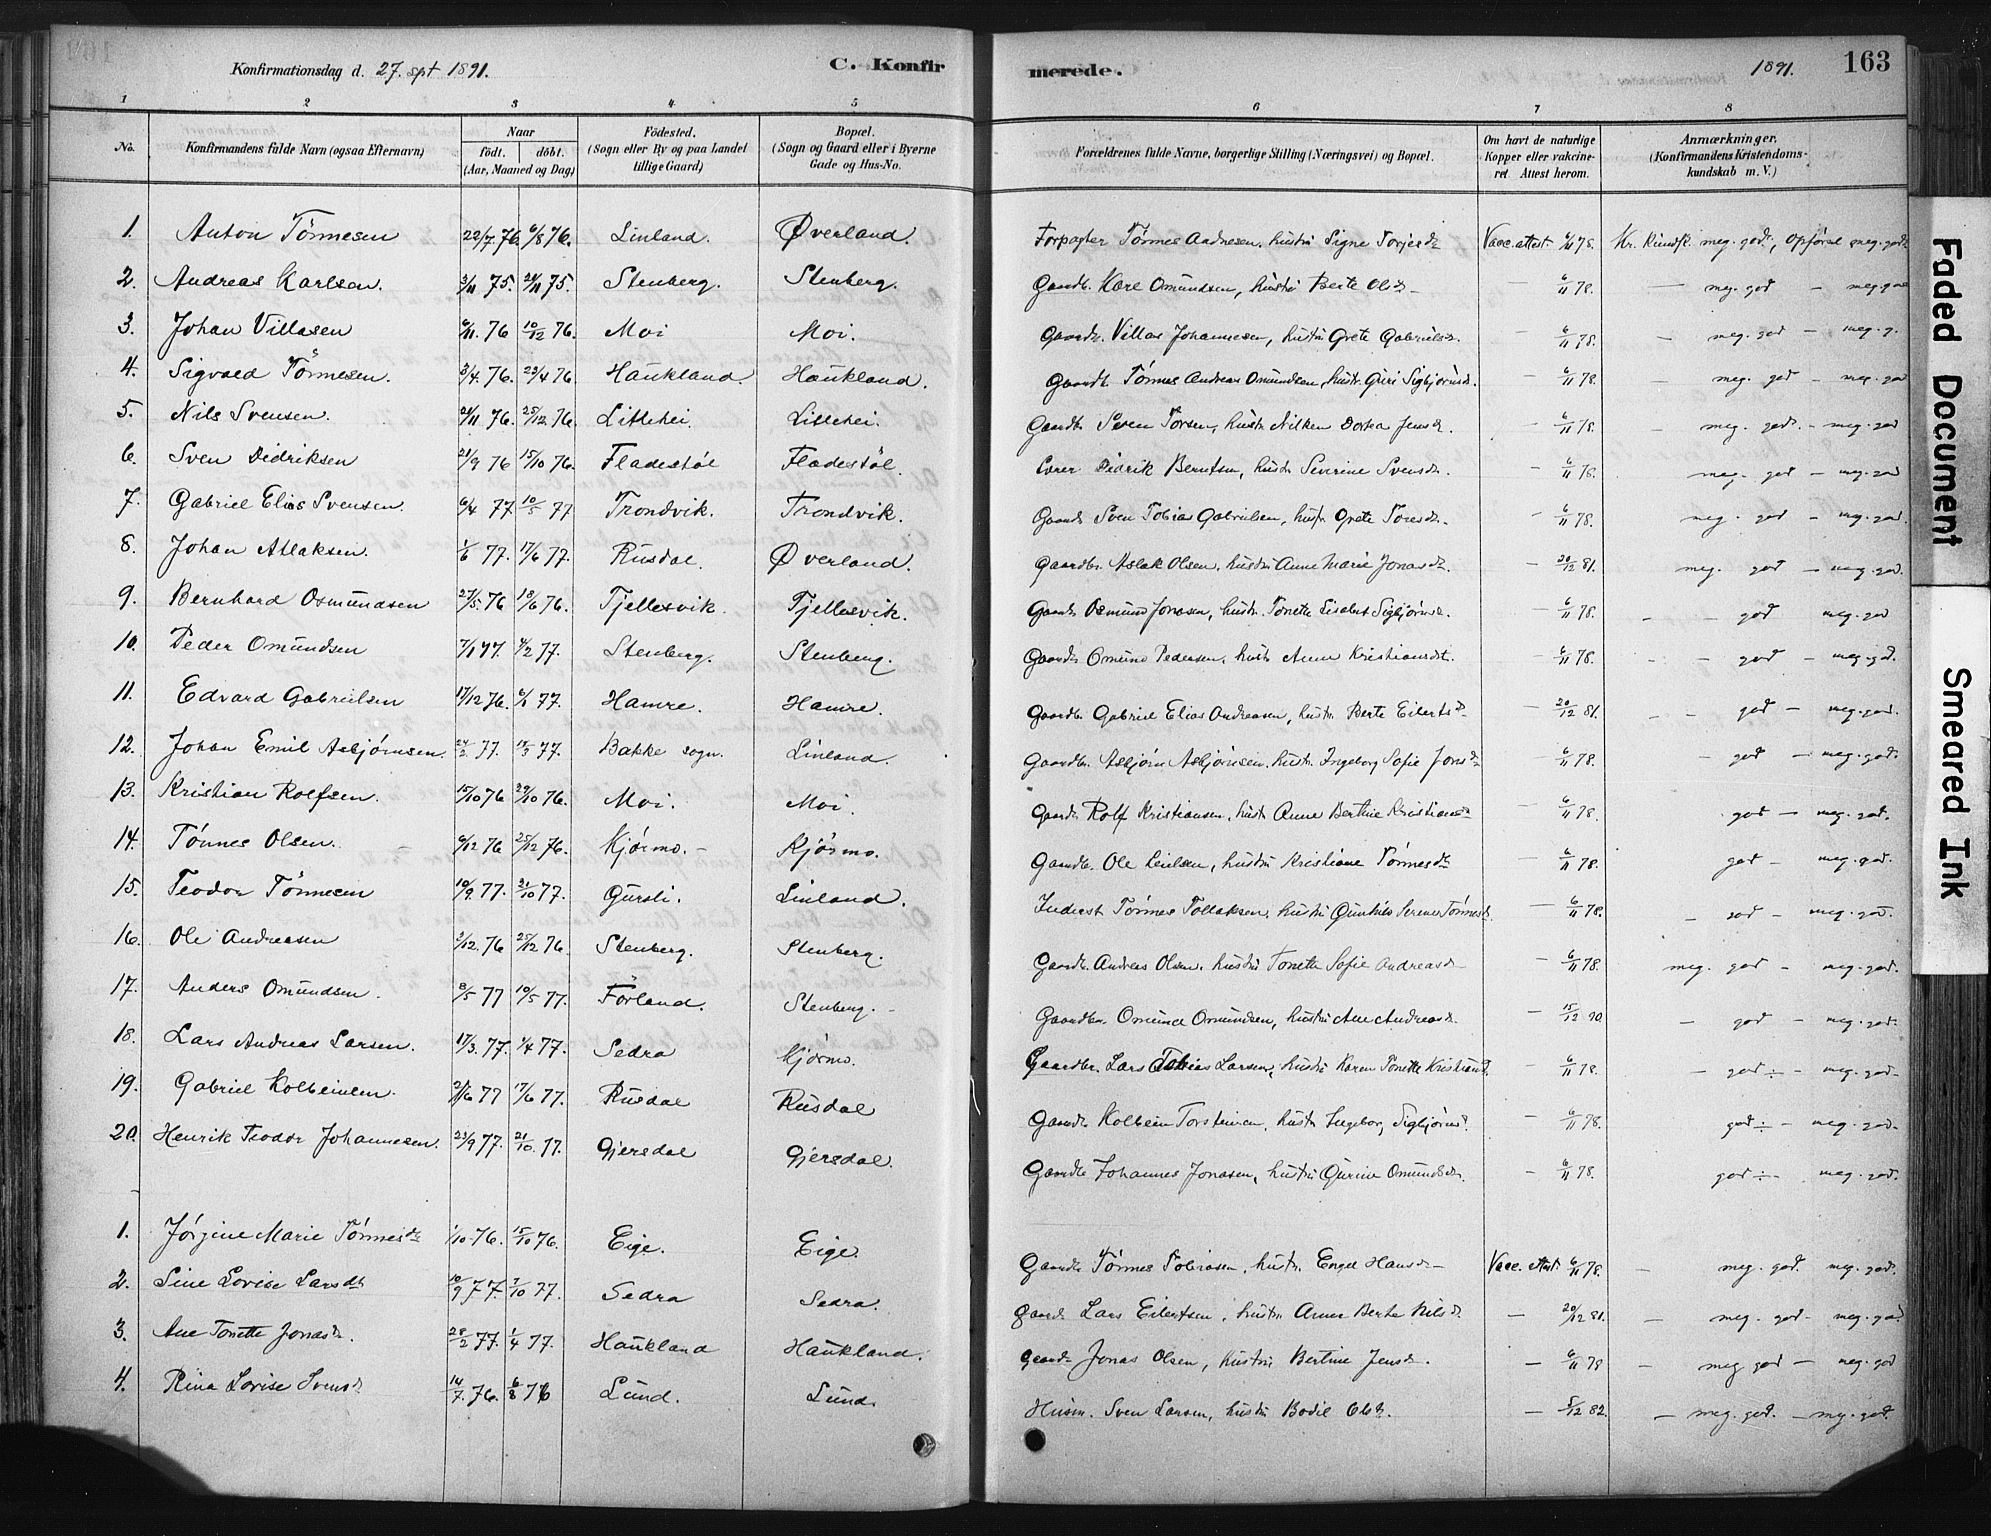 Konfirmationsdag d. 27. spt 1891. C. Konfirmerede. 1891. 163
1 2 3 4 5 6 7 8
No. Konfirmandens fulde Navn (ogsaa Efternavn) Naar födt. döbt. (Aar, Maaned og Dag) Födested. (Sogn eller By og paa Landet tillige Gaard) Bopæl. (Sogn og Gaard eller i Byerne Gade og Hus-No. Forældrenes fulde Navne, borgerlige Stilling (Næringsvei) og Bopæl. Om havt de naturlige Kopper eller vakcineret. Attest herom. Anmærkninger. (Konfirmandens Kristendomskundskab m. V.)
1. Anton Tönnesen 22/7. 76. 6/8 76. Linland. Øverland. Forpagter Tönnes Andresen, hustru Signe Torjesd. Vacc. attest. 6/11 78. Kr. kundsk. meg. godt, Opförsel meg. godt
2. Andreas Karlsen. 3/11 75. 21/11 75. Stenberg. Stenberg. Gaardb. Karl Omundsen, hustru Berte Olsd. – 6/11 78. – meg. god – meg. god
3. Johan Villasen 6/11. 76 10/12 76. Moi Moi. Gaardb. Villas Johannesen, hustru Grete Gabrielsd. – 6/11 78. – meg. god – meg. g.
4. Sigvald Tönnesen. 3/4. 76. 23/4 76 Haukland. Haukland. Gaardb. Tönnes Andreas Omundsen, hustr. Guri Sigbjörnsd. – 6/11 78. – meg. god – meg. god
5. Nils Svensen. 21/11 76. 25/12 76. Littlehei. Littlehei. Gaardb. Sven Torsen, hustr. Nilken Dortea Jensd. – 6/11 78. – meg. god. – meg. god
6. Sven Didriksen 21/9 76 15/10 76. Fladestöl Fladestöl. Didrik Berntsen, hustr. Severine Svensd. – 6/11 78. meg. god – meg. god
7. Gabriel Elias Svensen. 6/4 77. 10/5 77 Trondvik. Trondvik. Gaardb. Sven Tobias Gabrielsen, hustr. Grete Toresd. – 6/11 78. meg. god – meg. god.
8. Johan Atlaksen. 1/6 77. 17/6 77. Rusdal. Øverland. Gaardbr. Aslak Olsen, hustru Anne Marie Jonasd. – 20/12 81. meg. god – meg. god.
9. Bernhard Osmundsen 27/5. 76 18/6 76. Tjellesvik. Tjellesvik. Gaardb. Osmund Jonasen, hustr. Tonette Lisabet Sigbjörnsd. – 6/11 78. – – god meg. god
10. Peder Omundsen 7/1 77. 4/2 77. Stenberg. Stenberg. Gaardb. Omund Pedersen, hustr. Anne Kristiansdt. – 6/11 78. – – god – meg. god.
11. Edvard Gabrielsen 17/12 76. 6/1 77. Hamre. Hamre. Gaardb. Gabriel Elias Andreasen, hustr. Berte Eilertsd. – 20/12 81. – – god – meg. god.
12. Johan Emil Asbjörnsen. 24/2. 77. 18/3 77. Bakke sogn. Linland. Gaardbr. Asbjörn Asbjörnsen, hustr. Ingeborg Sofie Jonsd. – 6/11 78. – god – meg. god.
13. Kristian Rolfsen. 15/10 76 29/10 76. Moi. Moi. Gaardb. Rolf Kristiansen, hustr. Anne Bertine Kristiansd. – 6/11 78. god – meg. god.
14. Tönnes Olsen. 6/12 76 25/12 76. Kjörmo. – Kjörmo. Gaardb. Ole hustru Kristiane Tönnesdt. – 6/11 78. god – meg. god.
15. Teodor Tönnesen 10/9. 77. 21/10 77. Gursli. Linland. Inderst Tönnes Tollaksen, hustru Serene Tönnesd. – 6/11 78. – god – meg. god.
16. Ole Andreasen 3/12. 76 25/12 76. Stenberg. Stenberg. Gaardb. Andreas Olsen, hustru Tonette Sofie Andreasd. – 6/11 78. meg. god – meg. god.
17. Anders Omundsen. 8/5 77 10/5 77. Förland. Stenberg. Gaardbr. Omund Omundsen, hustru Ane Andreasd. – 15/12 90. – god – meg. god.
18. Lars Andreas Larsen. 17/3. 77. 1/4 77. Sedra Kjörmo. Gaardbr. Lars Tobias Larsen, hustru Karen Tonette Kristiansd. – 6/11 78. – god ÷ – meg. god.
19. Gabriel Kolbeinsen. 2/6 77 17/6 77. Rusdal Rusdal Gaardb. Kolbein Torsteinsen, hustr. Ingeborg Sigbjörnsd. – 6/11 78. god ÷ – meg. god.
20. Henrik Teodor Johannesen. 23/9 77. 21/10. 77. Gjersdal Gjersdal. Gaardb. Johannes Jonasen, hustru Gurine Omundsd. – 6/11 78. god ÷ – meg. god.
1. Jörgine Marie Tönnesd. 1/10 76. 15/10 76. Eige. Eige. Gaardb. Tönnes Tobiasen, hustr. Engel Hansd. Vacc. attst. 6/11 78. – meg. god. meg. god.
2. Sine Lovise Larsdt 10/9 77. 7/10 77. Sedra Sedra. Gaardb. Lars Eilertsen, hustru Anne Berte Nilsd. – 20/12 81. – meg. god – meg. god
3. Ane Tonette Jonasd. 28/2 77. 1/4 77. Haukland Haukland. Gaardb. Jonas Olsen, hustru Bertine Jensd. – 6/11 78 – meg god – meg. god
4. Rina Lovise Svensd. 14/7. 76. 6/8 76 Lund. Lund. Husm. Sven Larsen, hustru Bodil Olsd. – 5/12 82. – meg. god. – meg. god.
Faded Document
Smeared Ink